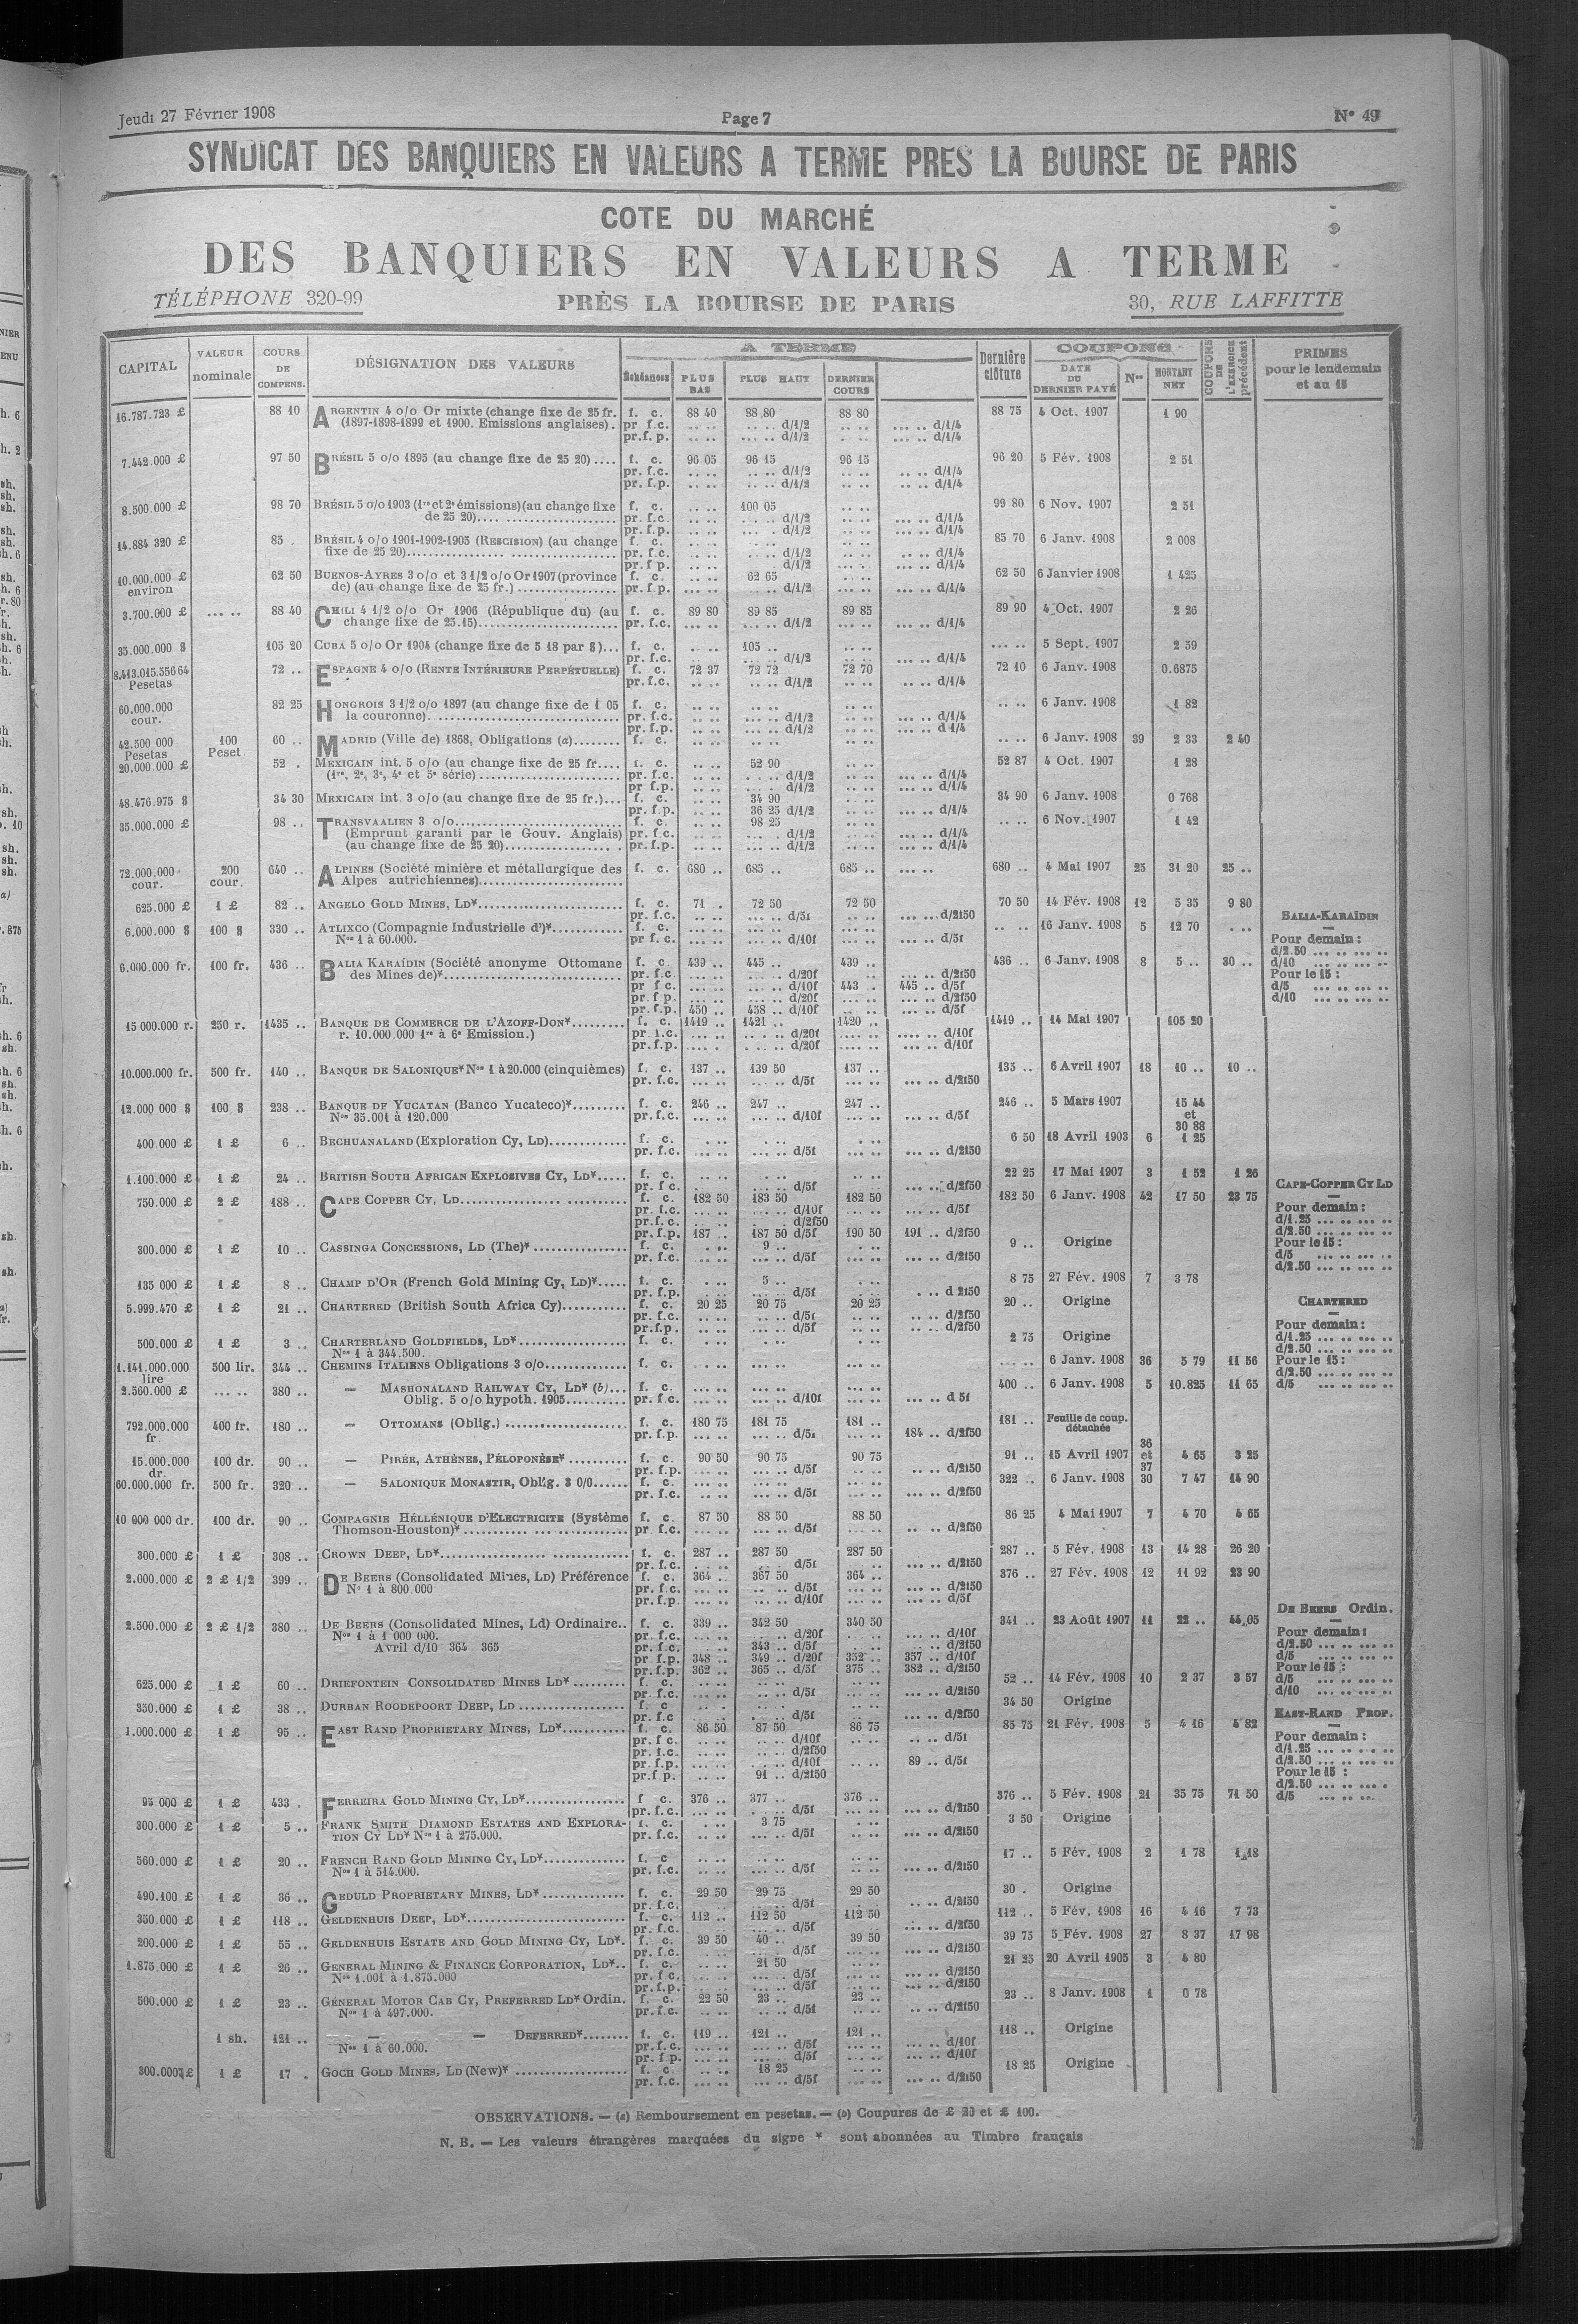 Jeudi 27 Février 1908
Page 7
N° 49
SYNDICAT DES BANQUIERS EN VALEURS A TERME PRES LA BOURSE DE PARIS
COTE DU MARCHÉ
DES BANQUIERS EN VALEURS A TERME
TÉLÉPHONE 320-99
PRÈS LA BOURSE DE PARIS
30, RUE LAFFITTE
CAPITAL VALEUR nominale COURS DE COMPENS. DÉSIGNATION DES VALEURS A TERME Échéances PLUS BAS PLUS HAUT DERNIER COURS Dernière clôture COUPONS DATE DU DERNIER PAYÉ Nos MONTANT NET COUPONS DE L'EXERCICE précédent PRIMES pour le lendemain et au 15
16.787.723 £ 88 10 ARGENTIN 4 o/o Or mixte (change fixe de 25 fr. f. c. 88 40 88 80 88 80 88 75 4 Oct. 1907 1 90
(1897-1898-1899 et 1900. Emissions anglaises). pr f.c. .. .. .. .. d/1/2 .. .. ... .. d/1/4
pr.f. p. .. .. .. .. d/1/2 .. .. ... .. d/1/4
7.442.000 £ 97 50 BRÉSIL 5 o/o 1895 (au change fixe de 25 20).... f. c. 96 05 96 15 96 15 96 20 5 Fév. 1908 2 51
pr. f.c. .. .. .. .. d/1/2 .. .. .. .. d/1/4
pr. f.p. .. .. .. .. d/1/2 .. .. ... .. d/1/4
8.500.000 £ 98 70 BRÉSIL 5 o/o 1903 (1re et 2e émissions) (au change fixe f. c. .. .. 100 05 .. .. 99 80 6 Nov. 1907 2 51
de 25 20).... pr. f.c. .. .. d/1/2 .. .. ... .. d/1/4
pr. f.p. .. .. d/1/2 .. .. ... .. d/1/4
14.884 320 £ 85 . BRÉSIL 4 o/o 1901-1902-1905 (RESCISION) (au change f. c. 85 70 6 Janv. 1908 2 008
fixe de 25 20).... pr. f.c. .. .. d/1/2 .. .. d/1/4
pr. f p. .. .. d/1/2 .. .. d/1/4
10.000.000 £ 62 50 BUENOS-AYRES 3 o/o et 3 1/2 o/o Or 1907 (province f. c. .. .. 62 65 .. .. 62 50 6 Janvier 1908 1 425
environ de) (au change fixe de 25 fr.) pr f.p. ... .. d/1/2 ... .. d/1/4
3.700.000 £ ... .. 88 40 CHILI 4 1/2 o/o Or 1906 (République du) (au f. c. 89 80 89 85 89 85 89 90 4 Oct. 1907 2 26
change fixe de 25.15) pr. f.c. ... .. d/1/2 ... .. d/1/4
35.000.000 $ 105 20 CUBA 5 o/o Or 1904 (change fixe de 5 18 par $)... f. c. .. .. 105 .. ... .. 5 Sept. 1907 2 59
pr. f.c. d/1/2 ... .. d/1/4
8.413.015.556 64 72 .. ESPAGNE 4 o/o (RENTE INTÉRIEURE PERPÉTUELLE) f. c. 72 37 72 72 72 70 72 10 6 Janv. 1908 0.6875
Pesetas pr. f.c. .. .. d/1/2 .. .. d/1/4
60.000.000 82 25 HONGROIS 3 1/2 o/o 1897 (au change fixe de 1 05 f. c. .. .. .. .. 6 Janv. 1908 1 82
cour. la couronne) pr. f.c. .. .. d/1/2 ... .. d/1/4
pr. f.p. .. .. d/1/2 d 1/4
42.500 000 100 60 .. MADRID (Ville de) 1868, Obligations (a) f. c. .. .. .. .. 6 Janv. 1908 39 2 33 2 40
Pesetas Peset.
20.000.000 £ 52 . MEXICAIN int. 5 o/o (au change fixe de 25 fr.... f. c. .. .. 52 90 52 87 4 Oct. 1907 1 28
(1re, 2e, 3e, 4e et 5e série) pr. f.c. d/1/2 ... .. d/1/4
pr f.p. d/1/2 ... .. d/1/4
48.476.975 $ 34 30 MEXICAIN int. 3 o/o (au change fixe de 25 fr.)... f. c. .. .. 34 90 34 90 6 Janv. 1908 0 768
pr. f.p. 36 25 d/1/2 ... .. d/1/4
35.000.000 £ 98 .. TRANSVAALIEN 3 o/o f. c. .. .. 98 25 .. .. 6 Nov. 1907 1 42
(Emprunt garanti par le Gouv. Anglais) pr. f.c. d/1/2 ... .. d/1/4
(au change fixe de 25 20) pr. f.p. d/1/2 ... .. d/1/4
72.000.000 200 640 .. ALPINES (Société minière et métallurgique des f. c. 680 .. 685 .. 685 .. 680 .. 4 Mai 1907 25 31 20 25 ..
cour. cour. Alpes autrichiennes)
625.000 £ 1 £ 82 .. ANGELO GOLD MINES, LD* f. c. 71 .. 72 50 72 50 70 50 14 Fév. 1908 12 5 35 9 80
pr. f.c. d/5f ... .. d/2f50
6.000.000 $ 100 $ 330 .. ATLIXCO (Compagnie Industrielle d')* f. c. .. .. 16 Janv. 1908 5 12 70
Nos 1 à 60.000. pr f. c. d/10f ... .. d/5f
6.000.000 fr. 100 fr. 436 .. BALIA KARAÏDIN (Société anonyme Ottomane f. c. 439 .. 445 .. 439 .. 436 .. 6 Janv. 1908 8 5 .. 30 ..
des Mines de)* pr. f.c. d/20f ... .. d/2f50
pr f c. d/10f 443 .. 445 .. d/5f
pr. f p. d/20f ... .. d/2f50
pr. f.p. 450 .. 458 .. d/10f ... .. d/5f
BALIA-KARAÏDIN
Pour demain :
d/2.50 ... .. ... ..
d/10 ... .. ... ..
Pour le 15 :
d/5 ... .. ... ..
d/10 ... .. ... ..
15 000.000 r. 250 r. 1435 .. BANQUE DE COMMERCE DE L'AZOFF-DON* f. c. 1419 .. 1421 .. 1420 .. 1419 .. 14 Mai 1907 105 20
r. 10.000.000 1re à 6e Emission.) pr f.c. d/20f .... .. d/10f
pr. f.p. d/20f ... .. d/10f
10.000.000 fr. 500 fr. 140 .. BANQUE DE SALONIQUE* Nos 1 à 20.000 (cinquièmes) f. c. 137 .. 139 50 137 .. 135 .. 6 Avril 1907 18 10 .. 10 ..
pr. f.c. d/5f ... .. d/2f50
12.000 000 $ 100 $ 238 .. BANQUE DE YUCATAN (Banco Yucateco)* f. c. 246 .. 247 .. 247 .. 246 .. 5 Mars 1907 15 44
Nos 35.001 à 120.000 pr. f.c. d/10f ... .. d/5f et
30 88
400.000 £ 1 £ 6 .. BECHUANALAND (Exploration Cy, LD) f. c. 6 50 18 Avril 1903 6 1 25
pr. f.c. d/5f ... .. d/2f50
1.100.000 £ 1 £ 24 .. BRITISH SOUTH AFRICAN EXPLOSIVES CY, LD* f. c. 22 25 17 Mai 1907 3 1 52 1 26
pr. f c. d/5f ... .. d/2f50
750.000 £ 2 £ 188 .. CAPE COPPER CY, LD f. c. 182 50 183 50 182 50 182 50 6 Janv. 1908 42 17 50 23 75
pr. f.c. d/10f ... .. d/5f
pr. f. c. d/2f50
pr. f.p. 187 .. 187 50 d/5f 190 50 191 .. d/2f50
CAPE-COPPER CY LD
Pour demain :
d/1.25 ... .. ... ..
d/2.50 ... .. ... ..
Pour le 15 :
d/5 ... .. ... ..
d/2.50 ... .. ... ..
300.000 £ 1 £ 10 .. CASSINGA CONCESSIONS, LD (The)* f. c. 9 .. 9 .. Origine
pr. f.c. d/5f ... .. d/2f50
135 000 £ 1 £ 8 .. CHAMP D'OR (French Gold Mining Cy, LD)* f. c. 5 .. 8 75 27 Fév. 1908 7 3 78
pr. f.p. d/5f . .. d 2f50
5.999.470 £ 1 £ 21 .. CHARTERED (British South Africa Cy) f. c. 20 25 20 75 20 25 20 .. Origine
pr. f.c. d/5f d/2f50
pr.f.p. d/5f d/2f50
CHARTERED
Pour demain :
d/1.25 ... .. ... ..
d/2.50 ... .. ... ..
Pour le 15 :
d/2.50 ... .. ... ..
d/5 ... .. ... ..
500.000 £ 1 £ 3 .. CHARTERLAND GOLDFIELDS, LD* f. c. 2 75 Origine
Nos 1 à 344.500.
1.141.000.000 500 lir. 344 .. CHEMINS ITALIENS Obligations 3 o/o f. c. 6 Janv. 1908 36 5 79 11 56
lire
2.560.000 £ ... .. 380 .. — MASHONALAND RAILWAY CY, LD* (b)... f. c. 400 .. 6 Janv. 1908 5 10.825 11 65
Oblig. 5 o/o hypoth. 1905 pr. f.c. d/10f ... .. d 5f
792.000.000 400 fr. 180 .. — OTTOMANS (Oblig.) f. c. 180 75 181 75 181 .. 181 .. Feuille de coup.
fr. pr. f.p. d/5f 184 .. d/2f50 détachée
36
15.000.000 100 dr. 90 .. — PIRÉE, ATHÈNES, PÉLOPONÈSE* f. c. 90 50 90 75 90 75 91 .. 15 Avril 1907 et 4 65 3 25
dr. pr. f.p. d/5f .. .. d/2f50 37
60.000.000 fr. 500 fr. 320 .. — SALONIQUE MONASTIR, Oblig. 3 0/0 f. c. 322 .. 6 Janv. 1908 30 7 47 14 90
pr. f.c. d/5f ... .. d/2f50
10 000 000 dr. 100 dr. 90 .. COMPAGNIE HÉLLÉNIQUE D'ELECTRICITE (Système f. c. 87 50 88 50 88 50 86 25 4 Mai 1907 7 4 70 4 65
Thomson-Houston)* pr f.c. d/5f .. .. d/2f50
300.000 £ 1 £ 308 .. CROWN DEEP, LD* f. c. 287 .. 287 50 287 50 287 .. 5 Fév. 1908 13 14 28 26 20
pr. f.c. d/5f ... .. d/2f50
2.000.000 £ 2 £ 1/2 399 .. DE BEERS (Consolidated Mines, LD) Préférence f. c. 364 .. 367 50 364 .. 376 .. 27 Fév. 1908 12 11 92 23 90
N° 1 à 800.000 pr. f.c. d/5f ... .. d/2f50
pr. f.p. d/10f ... .. d/5f
2.500.000 £ 2 £ 1/2 380 .. DE BEERS (Consolidated Mines, Ld) Ordinaire.. f. c. 339 .. 342 50 340 50 341 .. 23 Août 1907 11 22 .. 44 05
Nos 1 à 1 000 000. pr. f.c. d/20f ... .. d/10f
Avril d/10 364 365 pr. f.c. 343 .. d/5f ... .. d/2f50
pr f.p. 348 .. 349 .. d/20f 352 .. 357 .. d/10f
pr. f.p. 362 .. 365 .. d/5f 375 .. 382 .. d/2f50
DE BEERS Ordin.
Pour demain :
d/2.50 ... .. ... ..
d/5 ... .. ... ..
Pour le 15 :
d/5 ... .. ... ..
d/10 ... .. ... ..
625.000 £ 1 £ 60 .. DRIEFONTEIN CONSOLIDATED MINES LD* f. c. 52 .. 14 Fév. 1908 10 2 37 3 57
pr. f.c. d/5f ... .. d/2f50
350.000 £ 1 £ 38 .. DURBAN ROODEPOORT DEEP, LD f. c 34 50 Origine
pr. f.c d/5f ... .. d/2f50
1.000.000 £ 1 £ 95 .. EAST RAND PROPRIETARY MINES, LD* f. c. 86 50 87 50 86 75 85 75 21 Fév. 1908 5 4 16 4 82
pr. f c. d/10f .. .. d/5f
pr. f.c. d/2f50
pr. f.p. d/10f 89 .. d/5f
pr.f.p. 91 .. d/2f50
EAST-RAND PROP.
Pour demain :
d/1.25 ... .. ... ..
d/2.50 ... .. ... ..
Pour le 15 :
d/2.50 ... .. ... .
d/5 ... .. ..
95 000 £ 1 £ 433 . FERREIRA GOLD MINING CY, LD* f c. 376 .. 377 .. 376 .. 376 .. 5 Fév. 1908 21 35 75 71 50
pr. f.c. d/5f ... .. d/2f50
300.000 £ 1 £ 5 .. FRANK SMITH DIAMOND ESTATES AND EXPLORA- f. c. 3 75 3 50 Origine
TION CY LD* Nos 1 à 275.000. pr. f.c. d/5f ... .. d/2f50
560.000 £ 1 £ 20 .. FRENCH RAND GOLD MINING CY, LD* f. c 17 .. 5 Fév. 1908 2 1 78 1 18
Nos 1 à 514.000. pr. f.c. d/5f ... .. d/2f50
490.100 £ 1 £ 36 .. GEDULD PROPRIETARY MINES, LD* f. c. 29 50 29 75 29 50 30 . Origine
pr. f.c. d/5f .. .. d/2f50
350.000 £ 1 £ 118 .. GELDENHUIS DEEP, LD* f. c. 112 .. 112 50 112 50 112 .. 5 Fév. 1908 16 4 16 7 73
pr. f.c. d/5f ... .. d/2f50
200.000 £ 1 £ 55 .. GELDENHUIS ESTATE AND GOLD MINING CY, LD*. f. c. 39 50 40 .. 39 50 39 75 5 Fév. 1908 27 8 37 17 98
pr. f.c. d/5f .. .. d/2f50
1.875.000 £ 1 £ 26 .. GENERAL MINING & FINANCE CORPORATION, LD*.. f. c. 21 50 21 25 20 Avril 1905 3 4 80
Nos 1.001 à 1.875.000 pr. f c. d/5f ... .. d/2f50
pr. f.p. d/5f ... .. d/2f50
500.000 £ 1 £ 23 .. GÉNÉRAL MOTOR CAB CY, PREFERRED LD* Ordin. f. c. 22 50 23 .. 23 .. 23 .. 8 Janv. 1908 1 0 78
Nos 1 à 497.000. pr. f.c. d/5f .. .. d/2f50
1 sh. 121 .. — — DEFERRED* f. c. 119 .. 121 .. 121 .. 118 .. Origine
Nos 1 à 60.000. pr. f.c. d/5f ... .. d/10f
pr. f p. d/5f ... .. d/10f
300.000 £ 1 £ 17 . GOCH GOLD MINES, LD (New)* f. c. 18 25 18 25 Origine
pr. f.c. d/5f ... .. d/2f50
OBSERVATIONS. — (a) Remboursement en pesetas. — (b) Coupures de £ 20 et £ 100.
N. B. — Les valeurs étrangères marquées du signe * sont abonnées au Timbre français